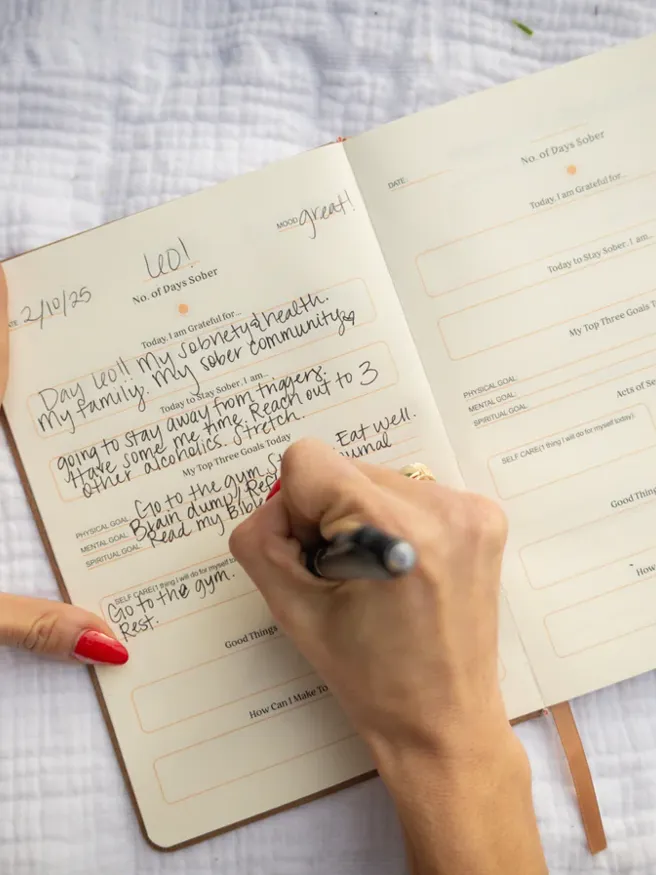 MOOD: great!
160!
No. of Days Sober
2/10/25
Today, I am Grateful for...
Day 160!! My sobriety & health.
My family. My sober community
Today to Stay Sober, I am...
going to stay away from triggers.
Have some me time. Reach out to 3
other alcoholics. Stretch.
My Top Three Goals Today
PHYSICAL GOAL: Go to the gym. Eat well.
MENTAL GOAL: Brain dump
SPIRITUAL GOAL: Read my Bible
SELF CARE (1 thing I will do for myself
Go to the gym.
Rest.
Good Things
How Can I Make
DATE:
No. of Days Sober
Today, I am Grateful for...
Today to Stay Sober, I am...
My Top Three Goals
PHYSICAL GOAL:
MENTAL GOAL:
SPIRITUAL GOAL:
Acts of
SELF CARE (1 thing I will do for myself today)
Good
How